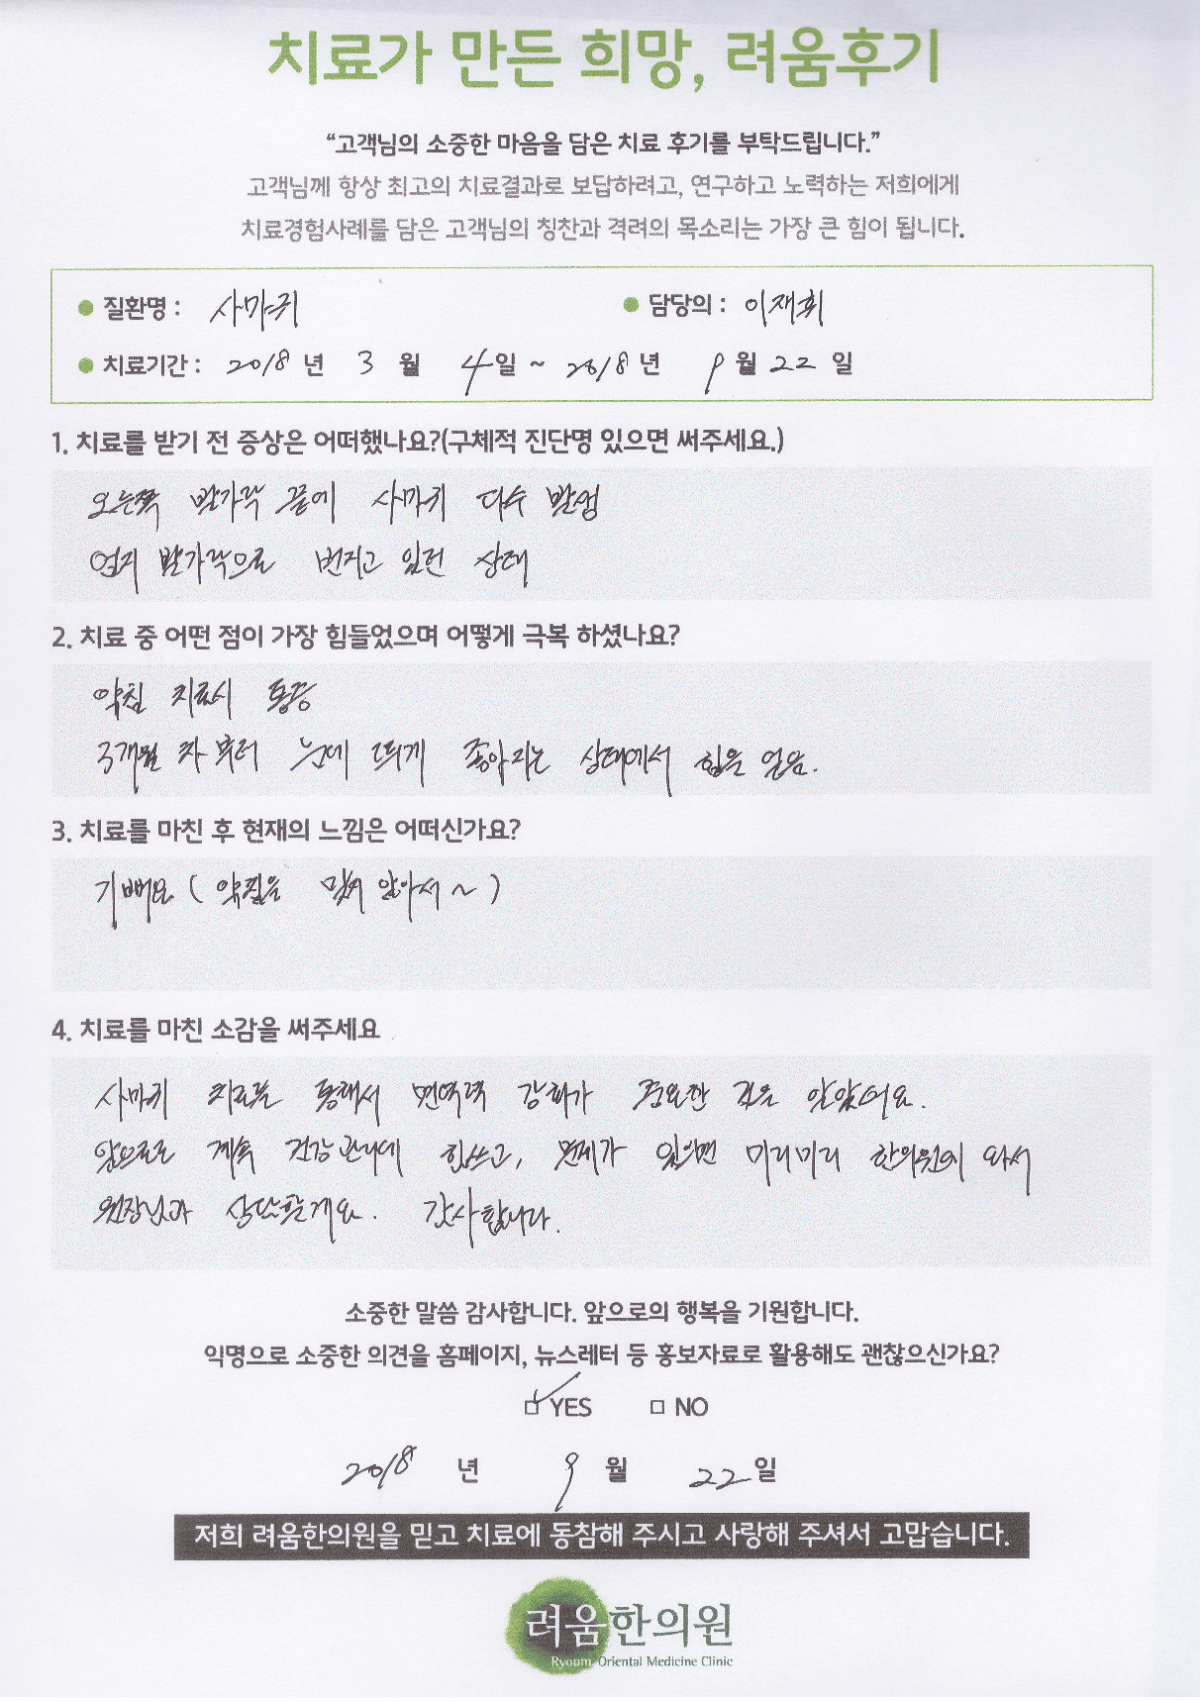 치료가 만든 희망, 려움후기
“고객님의 소중한 마음을 담은 치료 후기를 부탁드립니다.”
고객님께 항상 최고의 치료결과로 보답하려고, 연구하고 노력하는 저희에게
치료경험사례를 담은 고객님의 칭찬과 격려의 목소리는 가장 큰 힘이 됩니다.
질환명 : 사마귀 담당의 : 이재휘
치료기간 : 2018 년 3 월 4일 ~ 2018 년 9 월 22 일
1. 치료를 받기 전 증상은 어떠했나요?(구체적 진단명 있으면 써주세요.)
오른쪽 발가락 끝에 사마귀 다수 발생
엄지 발가락으로 번지고 있던 상태
2. 치료 중 어떤 점이 가장 힘들었으며 어떻게 극복 하셨나요?
약침 치료시 통증
3개월 차 부터 눈에 띄게 좋아지는 상태에서 힘을 얻음.
3. 치료를 마친 후 현재의 느낌은 어떠신가요?
기뻐요 ( 약침을 맞지 않아서 ~ )
4. 치료를 마친 소감을 써주세요
사마귀 치료를 통해서 면역력 강화가 중요한 것을 알았어요.
앞으로도 계속 건강관리에 힘쓰고, 문제가 있으면 미리미리 한의원에 와서
원장님과 상담할게요. 감사합니다.
소중한 말씀 감사합니다. 앞으로의 행복을 기원합니다.
익명으로 소중한 의견을 홈페이지, 뉴스레터 등 홍보자료로 활용해도 괜찮으신가요?
YES NO
2018 년 9 월 22 일
저희 려움한의원을 믿고 치료에 동참해 주시고 사랑해 주셔서 고맙습니다.
려움한의원
Ryoum Oriental Medicine Clinic